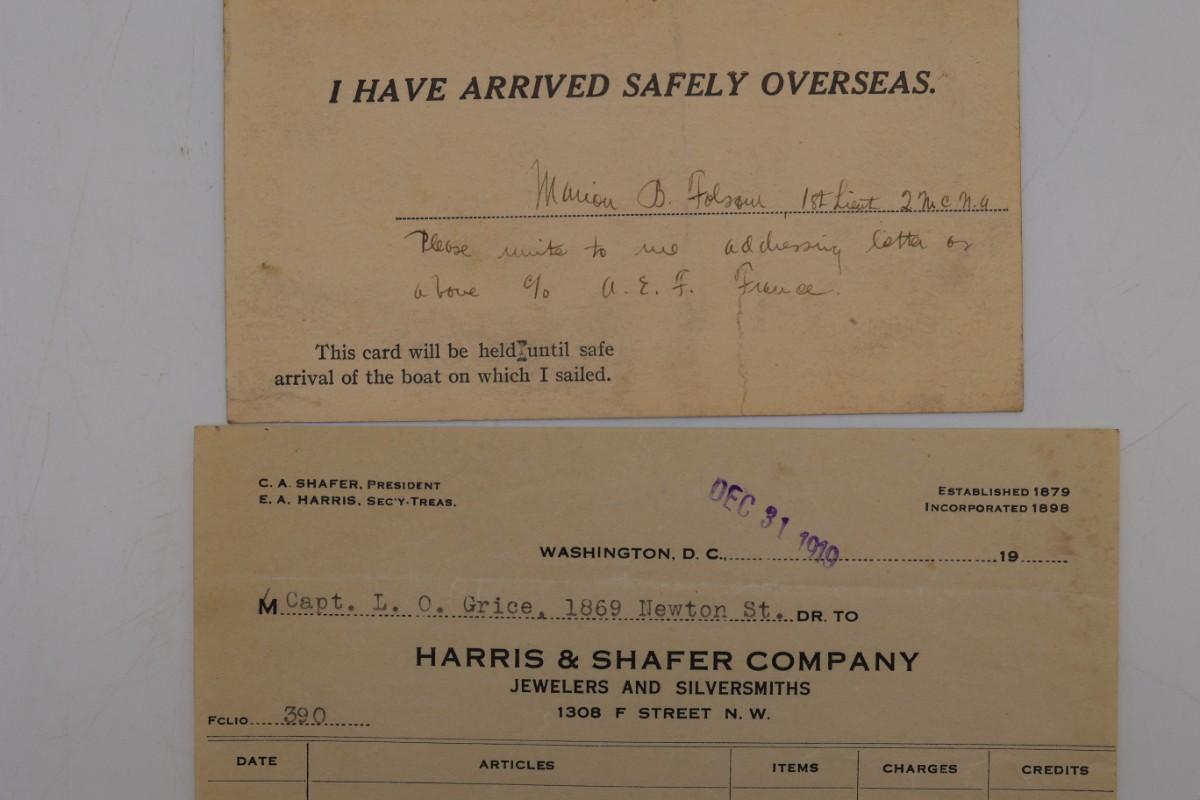 I HAVE ARRIVED SAFELY OVERSEAS.
Marion B. Folsom, 1st Lieut Q M C N.A
Please write to me addressing letter as
above c/o A. E. F. France.
This card will be held until safe
arrival of the boat on which I sailed.
C. A. SHAFER, PRESIDENT
E. A. HARRIS, SEC'Y-TREAS.
ESTABLISHED 1879
INCORPORATED 1898
DEC 31 1919
WASHINGTON, D. C., 19
M Capt. L. O. Grice, 1869 Newton St. DR. TO
HARRIS & SHAFER COMPANY
JEWELERS AND SILVERSMITHS
1308 F STREET N. W.
FCLIO 390
DATE ARTICLES ITEMS CHARGES CREDITS